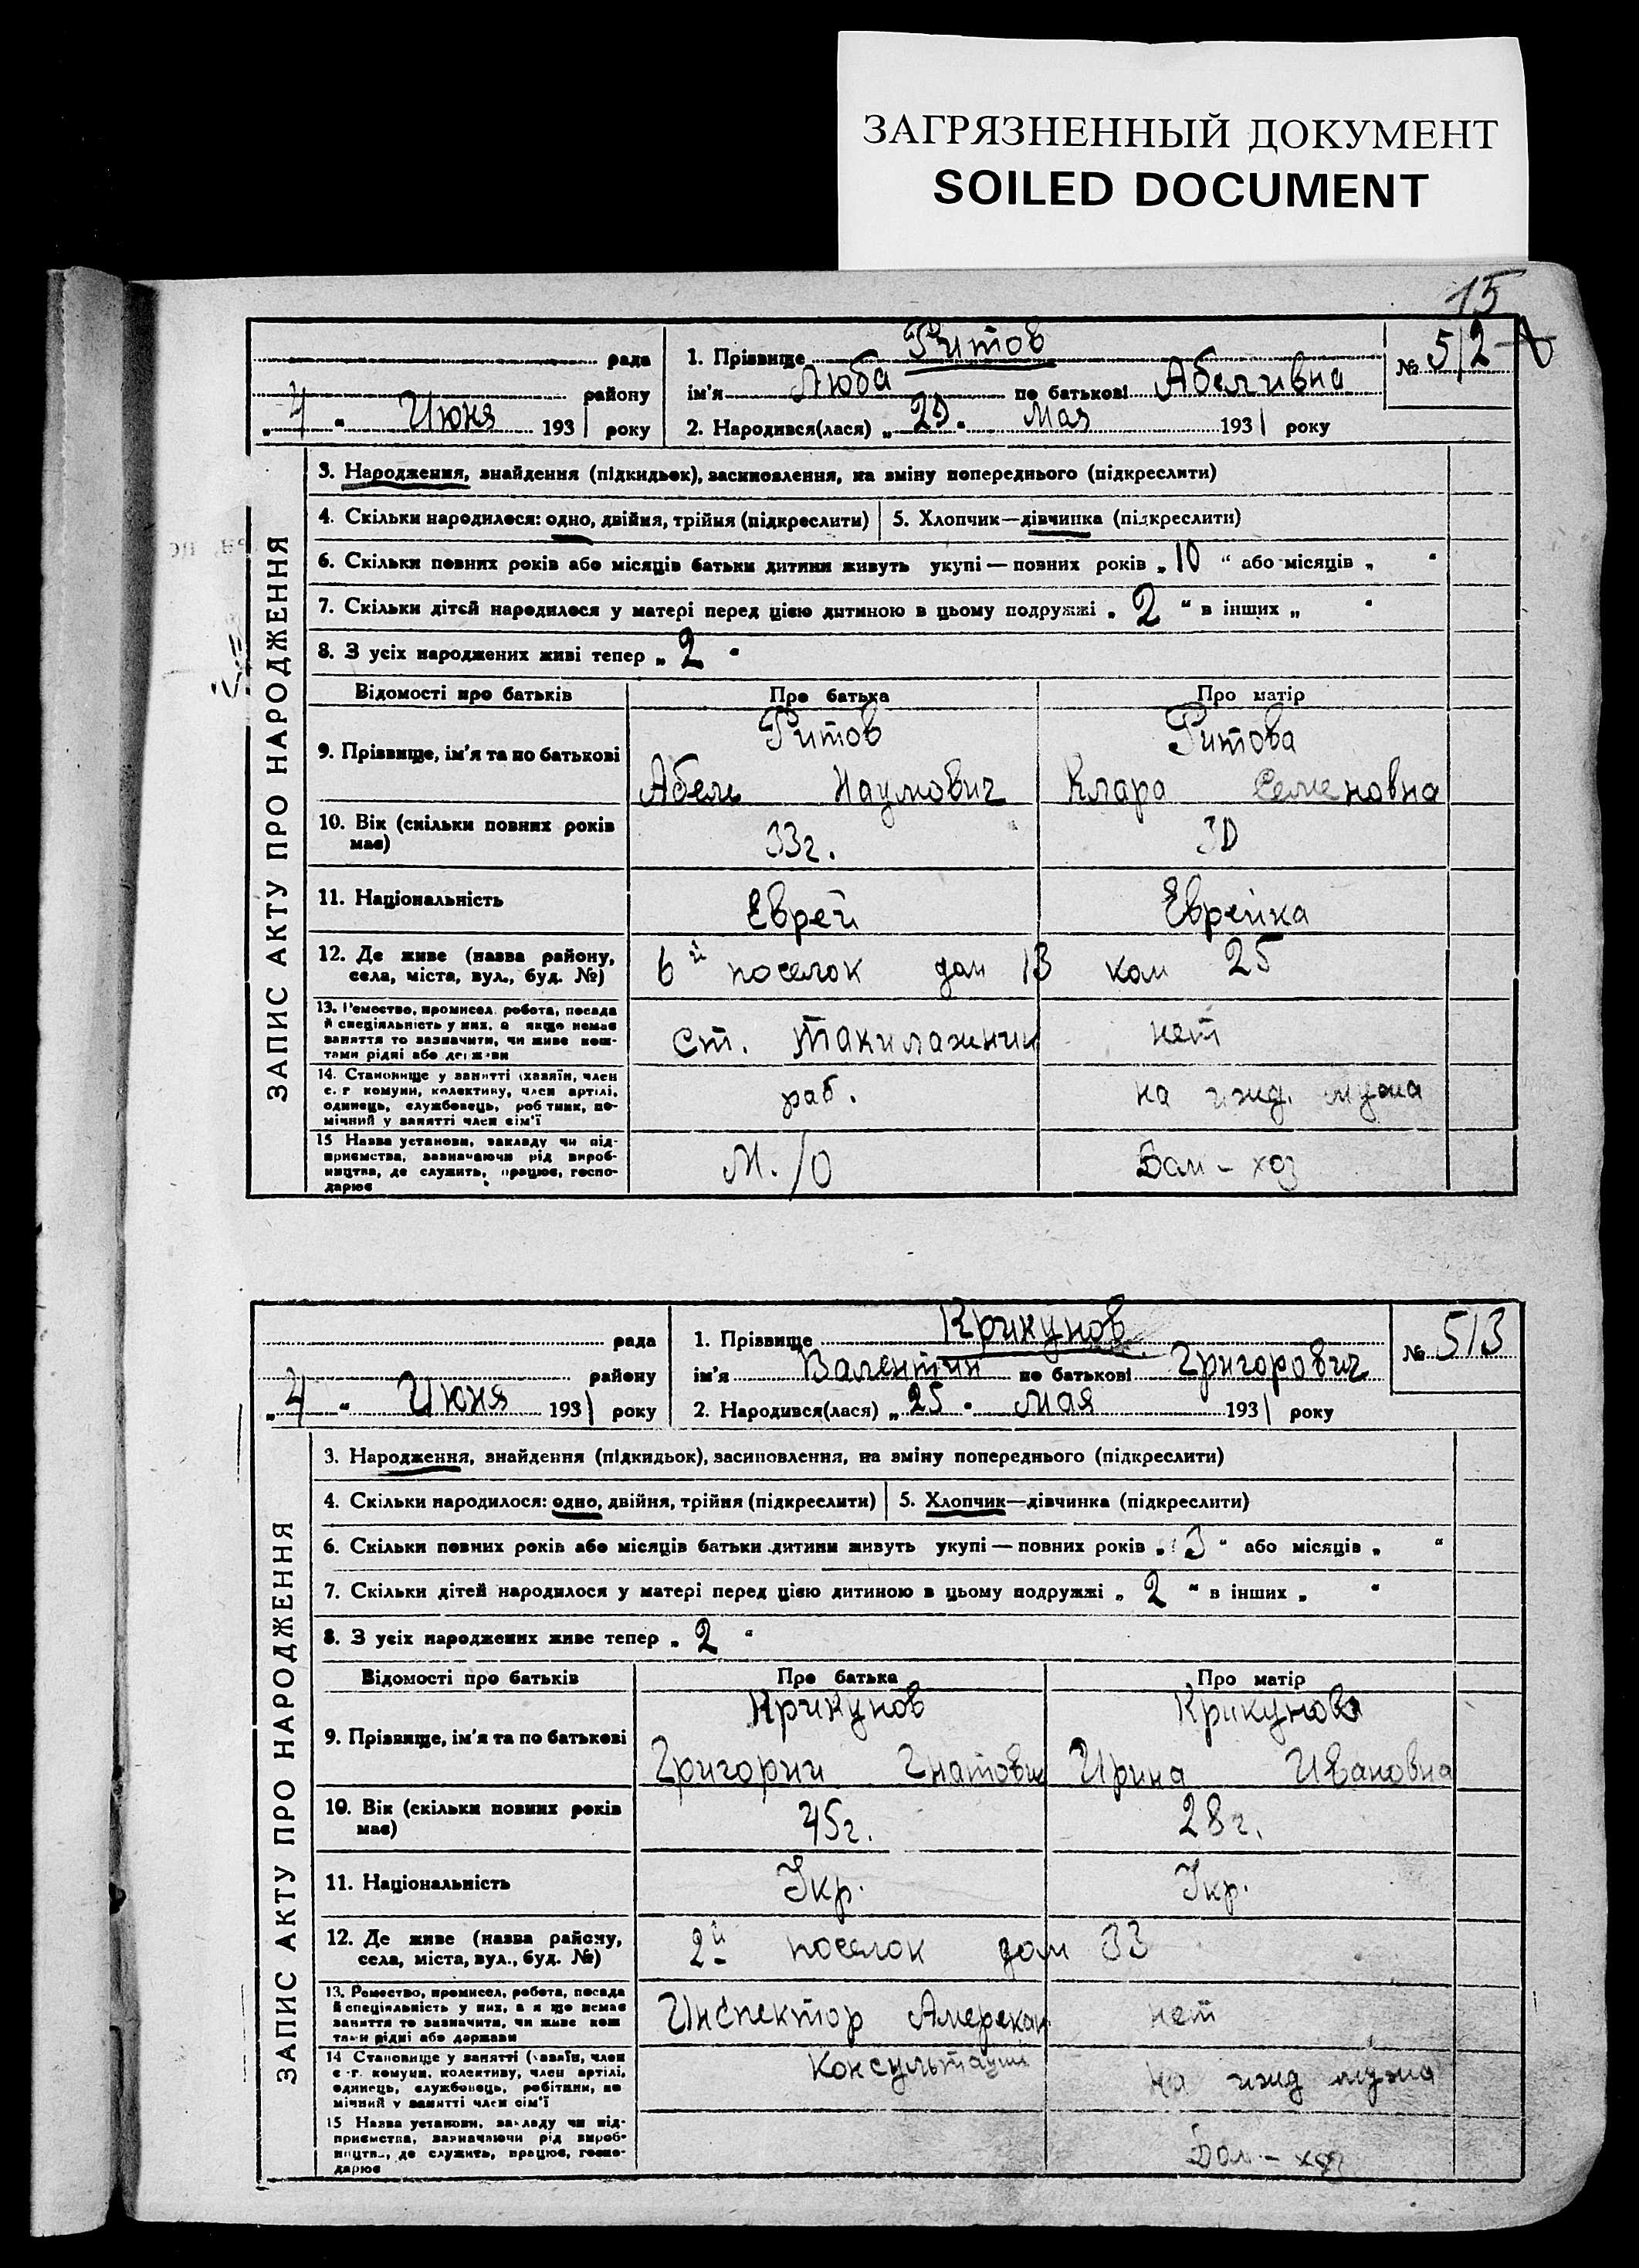 ЗАГРЯЗНЕННЫЙ ДОКУМЕНТ
SOILED DOCUMENT
15
рада
району
„ 4 “ Июня 1931 року
1. Прізвище Ритов
ім'я Люба по батькові Абеливна
2. Народився(лася) „ 20 “ Мая 1931 року
№ 512
ЗАПИС АКТУ ПРО НАРОДЖЕННЯ
3. Народження, знайдення (підкидьок), засиновлення, на зміну попереднього (підкреслити)
4. Скільки народилося: одно, двійня, трійня (підкреслити) 5. Хлопчик—дівчинка (підкреслити)
6. Скільки повних років або місяців батьки дитини живуть укупі — повних років „ 10 “ або місяців „ “
7. Скільки дітей народилося у матері перед цією дитиною в цьому подружжі „ 2 “ в інших „ “
8. З усіх народжених живі тепер „ 2 “
Відомості про батьків Про батька Про матір
9. Прізвище, ім'я та по батькові Ритов Ритова
Абель Наумович Клара Семеновна
10. Вік (скільки повних років має) 33г. 30
11. Національність Еврей Еврейка
12. Де живе (назва району,
села, міста, вул., буд. №) 6й поселок дом 13 ком 25
13. Ремество, промисел, робота, посада
й спеціяльність у них, а якщо немає
заняття то зазначити, чи живе кош-
тами рідні або держави
Ст. такилажник нет
14. Становище у занятті (хазяїн, член
с. г. комуни, колективу, член артілі,
одинець, службовець, робітник, по-
мічний у занятті член сім'ї
раб. на ижд. мужа
15 Назва установи, закладу чи під-
приємства, зазначаючи рід вироб-
ництва, де служить, працює, госпо-
дарює
М./О Дом-хоз
рада
району
„ 4 “ Июня 1931 року
1. Прізвище Крикунов
ім'я Валентин по батькові Григорович
2. Народився(лася) „ 25 “ мая 1931 року
№ 513
ЗАПИС АКТУ ПРО НАРОДЖЕННЯ
3. Народження, знайдення (підкидьок), засиновлення, на зміну попереднього (підкреслити)
4. Скільки народилося: одно, двійня, трійня (підкреслити) 5. Хлопчик—дівчинка (підкреслити)
6. Скільки повних років або місяців батьки дитини живуть укупі — повних років „ 3 “ або місяців „ “
7. Скільки дітей народилося у матері перед цією дитиною в цьому подружжі „ 2 “ в інших „ “
8. З усіх народжених живе тепер „ 2 “
Відомості про батьків Про батька Про матір
9. Прізвище, ім'я та по батькові Крикунов Крикунова
Григории Гнатович Ирина Ивановна
10. Вік (скільки повних років має) 45г. 28г.
11. Національність Укр. Укр.
12. Де живе (назва району,
села, міста, вул., буд. №) 2й поселок дом 33
13. Ремество, промисел, робота, посада
й спеціяльність у них, а якщо немає
заняття то зазначити, чи живе кош
тами рідні або держави
Инспектор Амерекан нет
14 Становище у занятті (хазяїн, член
с.-г. комуни, колективу, член артілі,
одинець, службовець, робітник, по
мічний у занятті член сім'ї
консультации на ижд мужа
15 Назва установи, закладу чи під-
приємства, зазначаючи рід вироб-
ництва, де служить, працює, госпо-
дарює
Дом-хоз